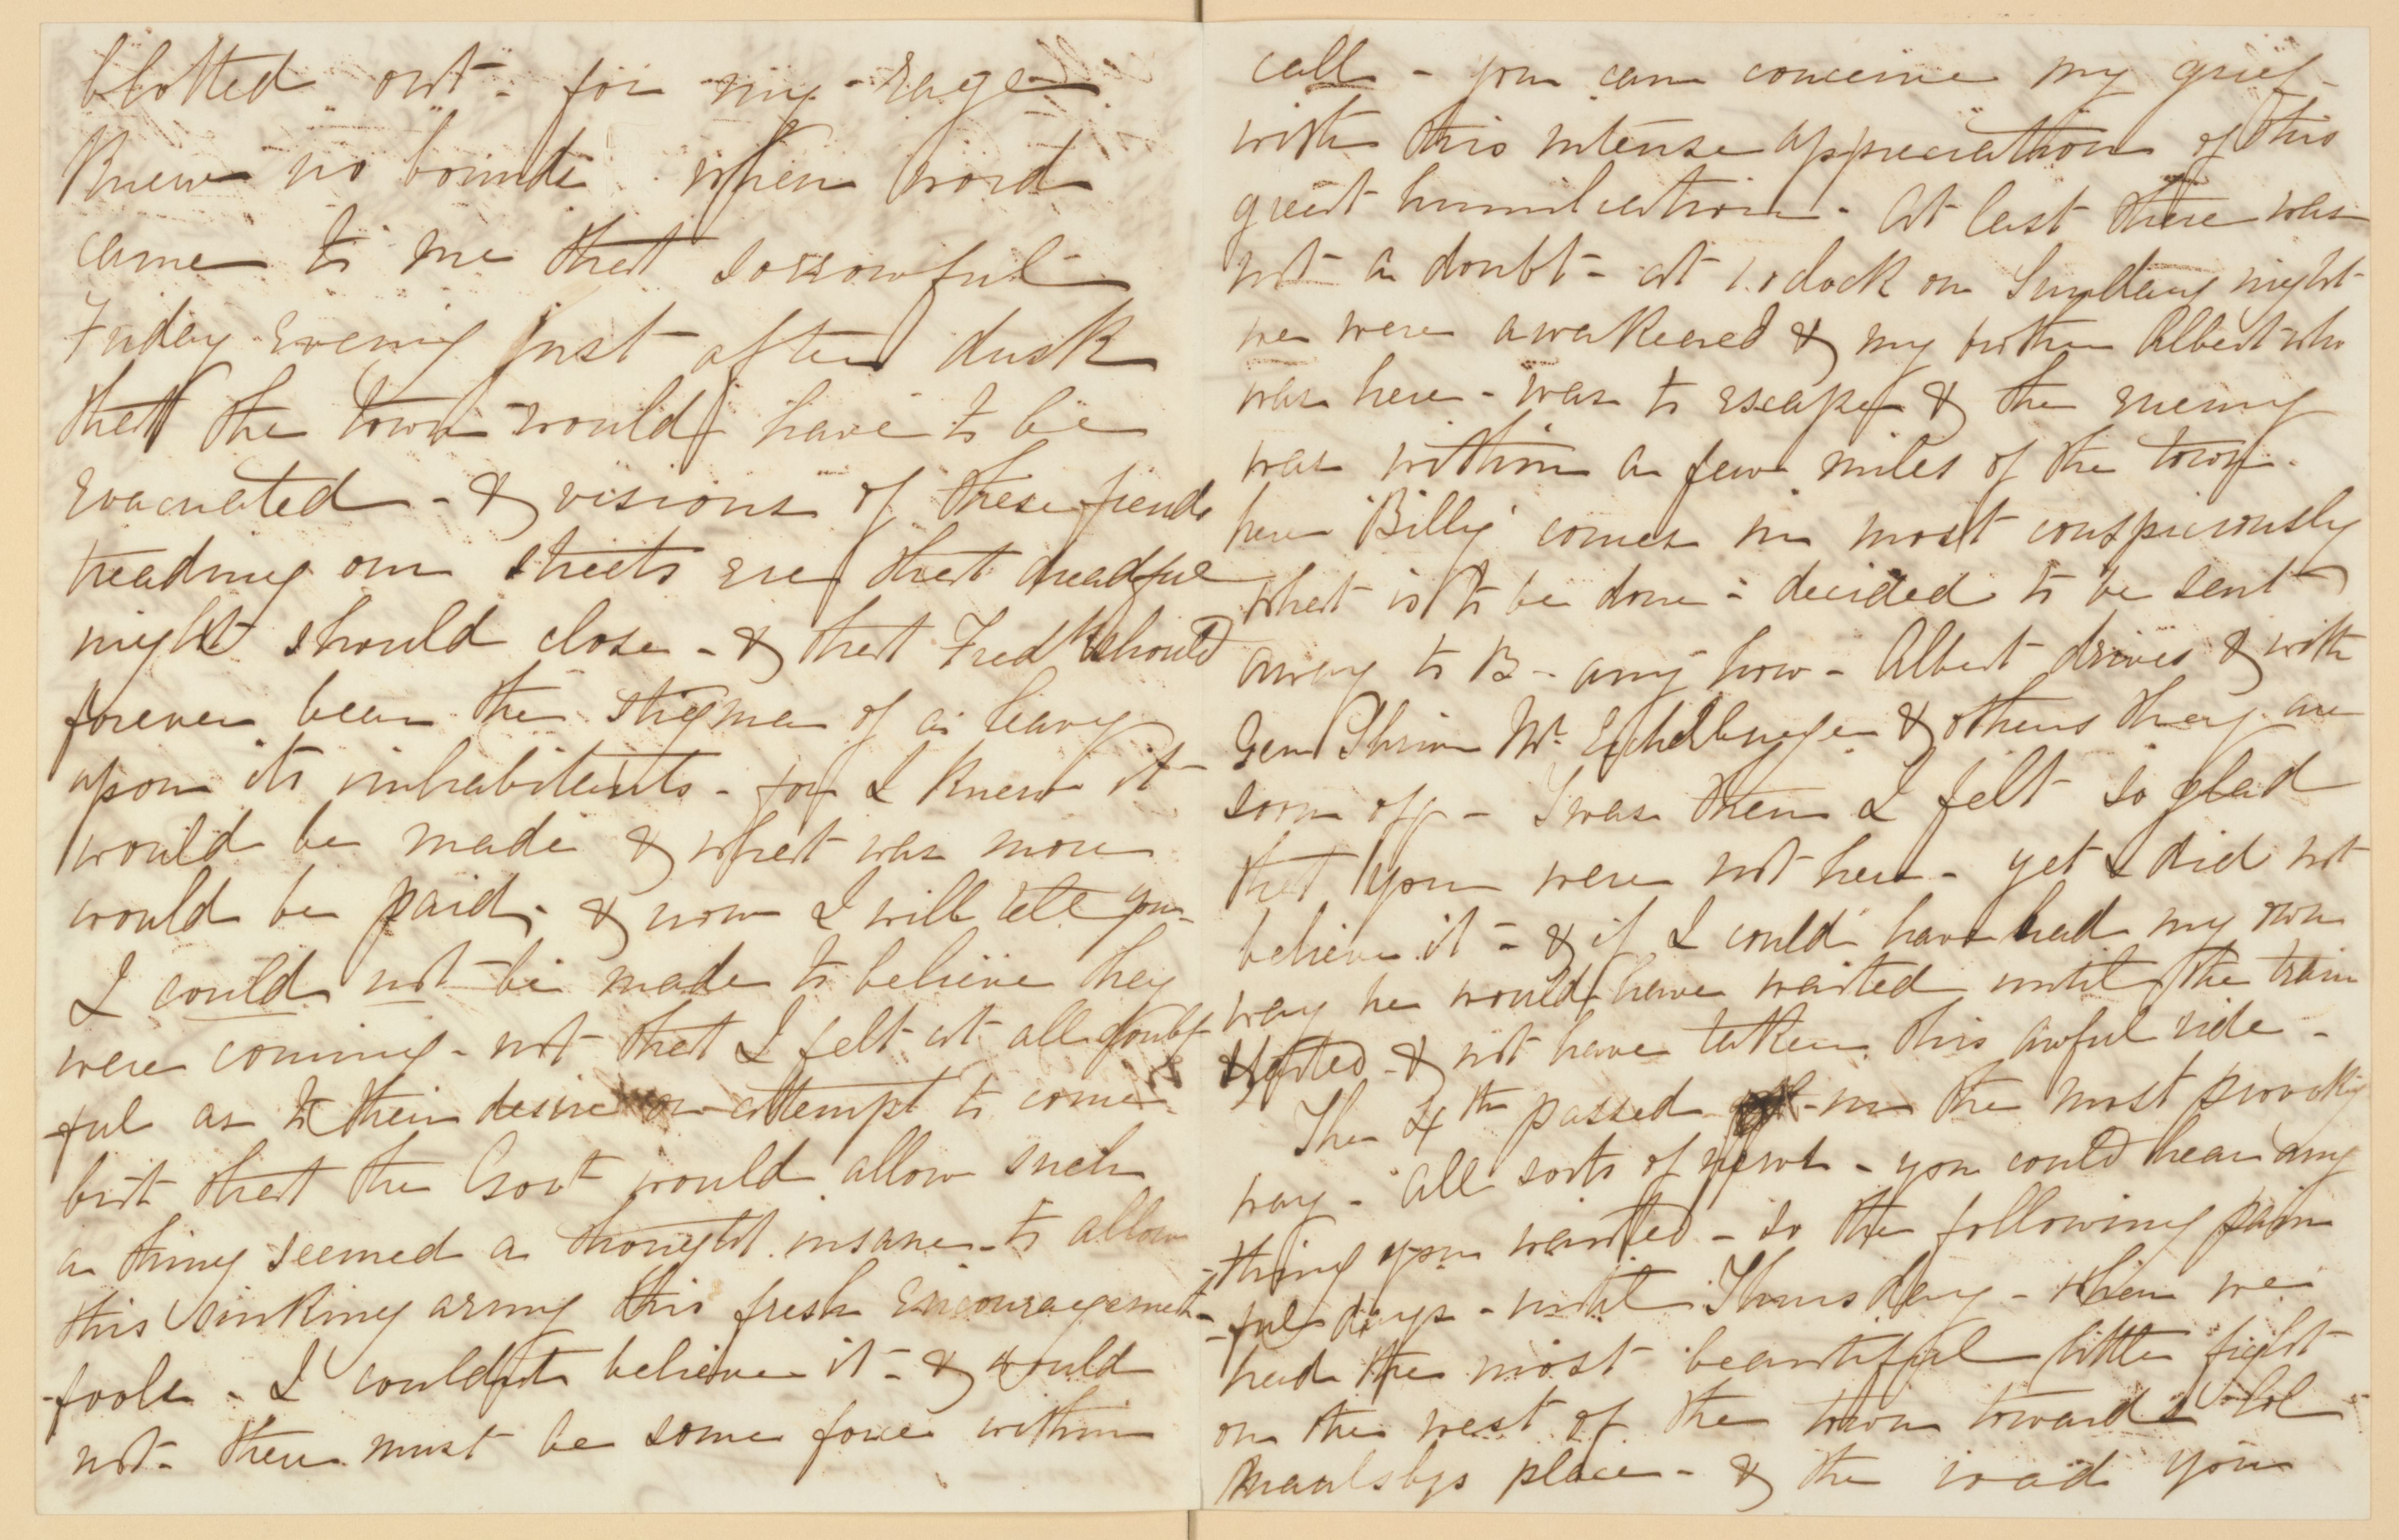 blotted out - for my - rage
Knew no bounds when word
came to me that sorrowful
Friday evening just after dusk
that the town would have to be
evacuated - & visions of these fiends
treading our streets ere that dreadful
night should close - & that Fredk should
forever bear the stigma of a leavy
upon its inhabitants - for I knew it
would be made & what was more
would be paid, - & now I will tell you
I could not be made to believe they
were coming - not that I felt at all doubt
ful as to their desire or attempt to come
but that the Govt would allow such
a thing seemed a thought insane - to allow
this sinking army this fresh encouragement -
fools - I couldnt believe it - & would
not - there must be some force within
call - you can conceive my grief -
with this intense appreciation of this
great humiliation - At last there was
not a doubt - at 1 oclock on Sunday night
we were awakened & my brother Albert who
was here - was to escape & the enemy
was within a few miles of the town -
here "Billy" comes in most conspicuously
what is to be done - decided to be sent
away to B - any how - Albert drives & with
Gen Shriver Mr. & others they are
soon off - Twas then I felt so glad
that you were not here - yet I did not
believe it - & if I could have had my own
way he would have waited until the train
started - & not have taken this awful ride -
The 4th passed in the most provoking
way - all sorts of news - you could hear any
-thing you wanted - so the following pain
-ful days - until Thursday - when we
had the most beautiful little fight
on the west of the town towards Col -
Maulsbys place - & the road you